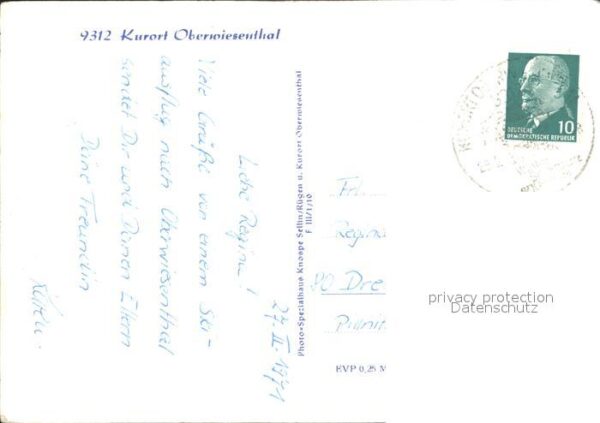 9312 Kurort Oberwiesenthal
27. II. 1971
Liebe Regina!
Viele Grüße von einem Ski-
ausflug nach Oberwiesenthal
sendet Dir und Deinen Eltern
Deine Freundin
Photo-Spezialhaus Knospe Sellin/Rügen u. Kurort Oberwiesenthal
F III/1/10
DEUTSCHE
DEMOKRATISCHE REPUBLIK
10
Frl.
Regina
80 Dre
EVP 0,25 M
privacy protection
Datenschutz